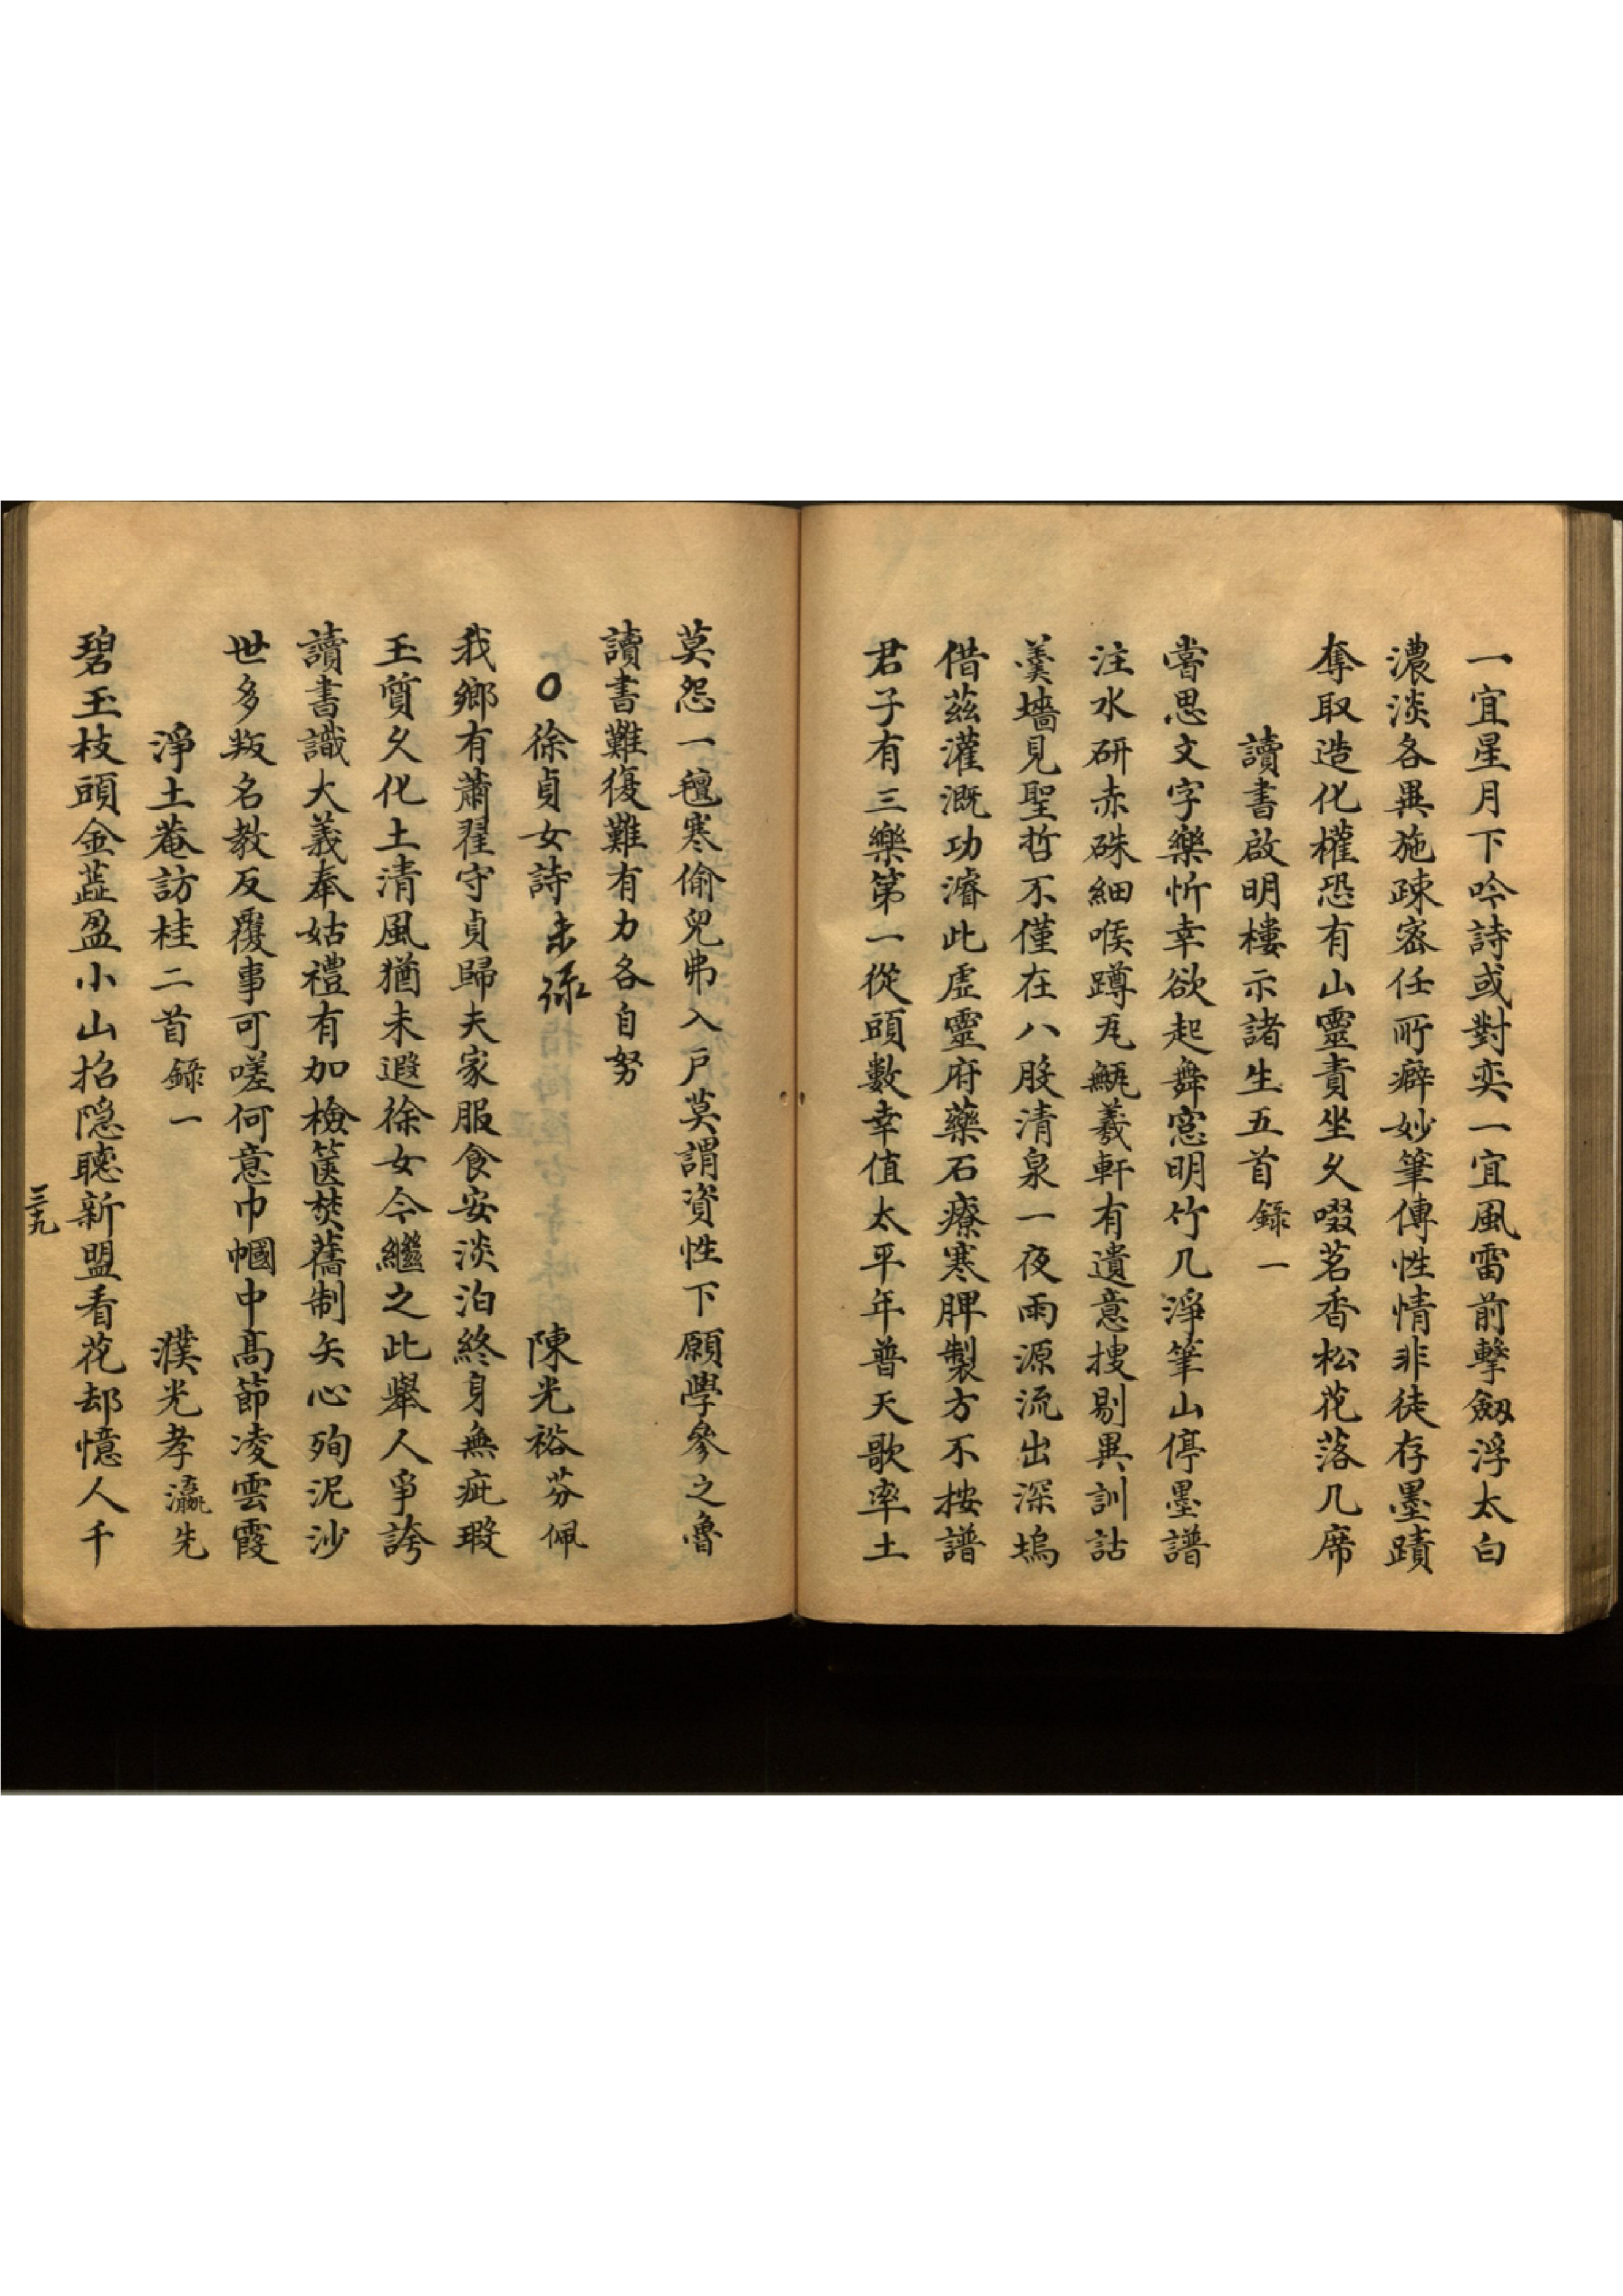 一宜星月下吟詩或對奕一宜風雷前擊劔浮太白
濃淡各異施疎密任所癖妙筆傳性情非徒存墨蹟
奪取造化權恐有山靈責坐久啜茗香松花落几席
讀書啟明樓示諸生五首錄一
嘗思文字樂忻幸欲起舞窓明竹几淨筆山停墨譜
注水研赤硃細喉蹲瓦瓻羲軒有遺意搜剔異訓詁
羹墻見聖哲不僅在八股清泉一夜雨源流出深塢
借茲灌溉功濬此虛靈府藥石療寒脾製方不按譜
君子有三樂第一從頭數幸值太平年普天歌率土
莫怨一氊寒偷兒弗入戶莫謂資性下願學參之魯
讀書難復難有力各自努
○徐貞女詩 未孫 陳光裕芬佩
我鄉有蕭翟守貞歸夫家服食安淡泊終身無疵瑕
玉質久化土清風猶未遐徐女今繼之此舉人爭誇
讀書識大義奉姑禮有加檢篋焚舊制矢心殉泥沙
世多叛名教反覆事可嗟何意巾幗中高節凌雲霞
淨土菴訪桂二首錄一 濮光孝瀛先
碧玉枝頭金蕋盈小山招隱聽新盟看花却憶人千
三九